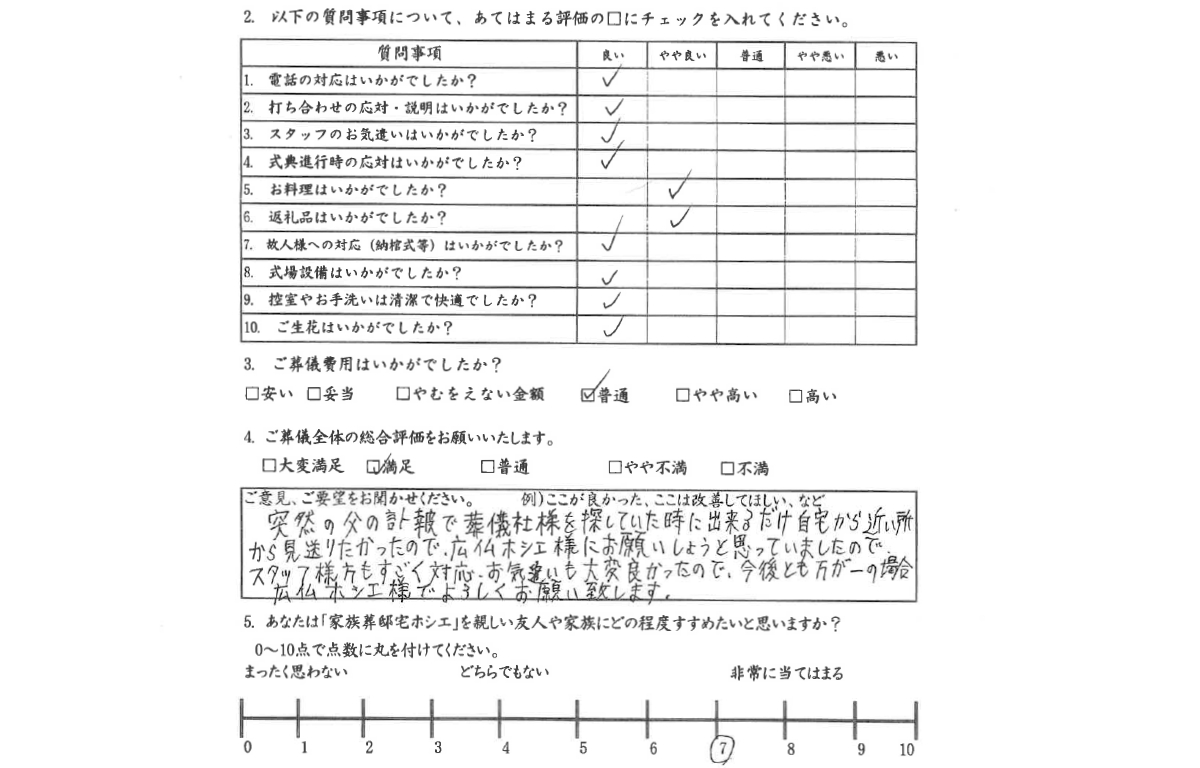 2. 以下の質問事項について、あてはまる評価の□にチェックを入れてください。
質問事項 良い やや良い 普通 やや悪い 悪い
1. 電話の対応はいかがでしたか? ✓
2. 打ち合わせの応対・説明はいかがでしたか? ✓
3. スタッフのお気遣いはいかがでしたか? ✓
4. 式典進行時の応対はいかがでしたか? ✓
5. お料理はいかがでしたか? ✓
6. 返礼品はいかがでしたか? ✓
7. 故人様への対応(納棺式等)はいかがでしたか? ✓
8. 式場設備はいかがでしたか? ✓
9. 控室やお手洗いは清潔で快適でしたか? ✓
10. ご生花はいかがでしたか? ✓
3. ご葬儀費用はいかがでしたか?
□安い □妥当 □やむをえない金額 ☑普通 □やや高い □高い
4. ご葬儀全体の総合評価をお願いいたします。
□大変満足 ☑満足 □普通 □やや不満 □不満
ご意見、ご要望をお聞かせください。 例)ここが良かった、ここは改善してほしい、など
突然の父の訃報で葬儀社様を探していた時に出来るだけ自宅から近い所
から見送りたかったので、広仏ホシエ様にお願いしようと思っていましたので、
スタッフ様方もすごく対応、お気遣いも大変良かったので、今後とも万が一の場合
広仏ホシエ様でよろしくお願い致します。
5. あなたは「家族葬邸宅ホシエ」を親しい友人や家族にどの程度すすめたいと思いますか?
0〜10点で点数に丸を付けてください。
まったく思わない どちらでもない 非常に当てはまる
0 1 2 3 4 5 6 7 8 9 10